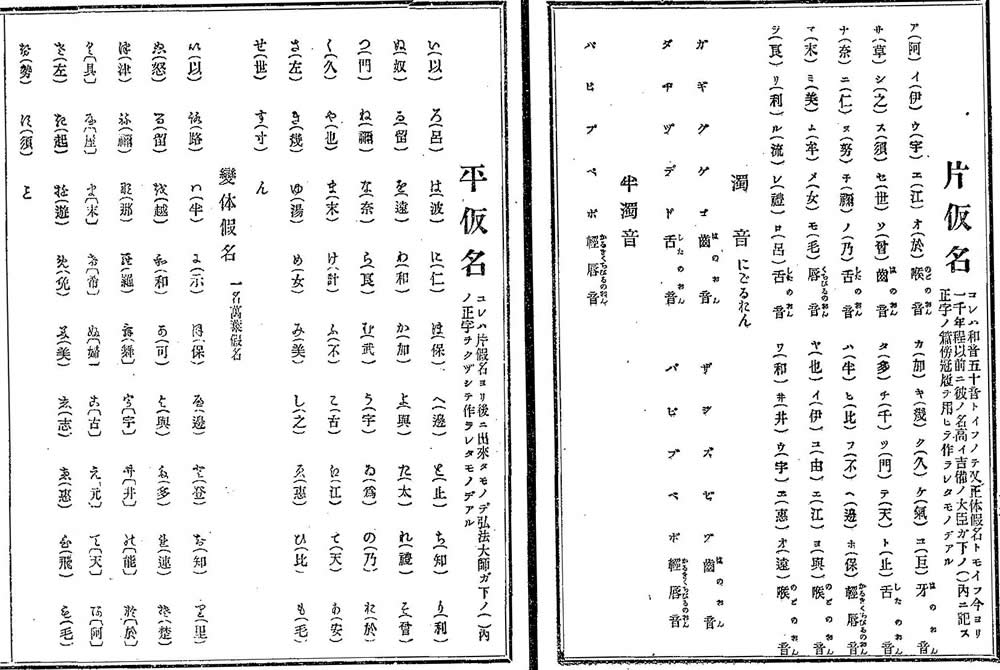 片仮名
コレハ和音五十音トイフノデ又正体假名トモイフ今ヨリ
一千年程以前ニ彼ノ名高イ吉備ノ大臣ガ下ノ( )内ニ記ス
正字ノ篇傍冠履ヲ用ヒテ作ラレタモノデアル
ア(阿)イ(伊)ウ(宇)エ(江)オ(於)喉音 のどのおん カ(加)キ(幾)ク(久)ケ(氣)コ(巨)牙音 はのおん
サ(草)シ(之)ス(須)セ(世)ソ(曾)齒音 はのおん タ(多)チ(千)ツ(門)テ(天)ト(止)舌音 したのおん
ナ(奈)ニ(仁)ヌ(努)子(禰)ノ(乃)舌音 したのおん ハ(半)ヒ(比)フ(不)ヘ(邊)ホ(保)輕唇音 かるきくちびるのおん
マ(末)ミ(美)ム(牟)メ(女)モ(毛)唇音 くちびるのおん ヤ(也)イ(伊)ユ(由)エ(江)ヨ(與)喉音 のどのおん
ラ(良)リ(利)ル(流)レ(禮)ロ(呂)舌音 したのおん ワ(和)ヰ(井)ウ(宇)ヱ(惠)オ(遠)喉音 のどのおん
濁音 にごるおん
ガギグゲゴ齒音 はのおん ザジズゼゾ齒音 はのおん
ダヂヅデド舌音 したのおん バビブベボ輕唇音 かるきくちびるのおん
半濁音
パピプペポ輕唇音 かるきくちびるのおん
平仮名
コレハ片假名ヨリ後ニ出來タモノデ弘法大師ガ下ノ( )内
ノ正字ヲクヅシテ作ラレタモノデアル
い(以)ろ(呂)は(波)に(仁)ほ(保)へ(邊)と(止)ち(知)り(利)
ぬ(奴)る(留)を(遠)わ(和)か(加)よ(與)た(太)れ(禮)そ(曾)
つ(門)ね(禰)な(奈)ら(良)む(武)う(宇)ゐ(爲)の(乃)お(於)
く(久)や(也)ま(末)け(計)ふ(不)こ(古)え(江)て(天)あ(安)
さ(左)き(幾)ゆ(湯)め(女)み(美)し(之)ゑ(惠)ひ(比)も(毛)
せ(世)す(寸)ん
變体假名 一名萬葉假名
(以)(路)(半)(示)(保)(邊)(登)(知)(里)
(怒)(留)(越)(和)(可)(與)(多)(連)(楚)
(津)(禰)(那)(羅)(舞)(宇)(井)(能)(於)
(具)(屋)(末)(希)(婦)(古)(元)(天)(阿)
(左)(起)(遊)(免)(美)(志)(惠)(飛)(毛)
(勢)(須)